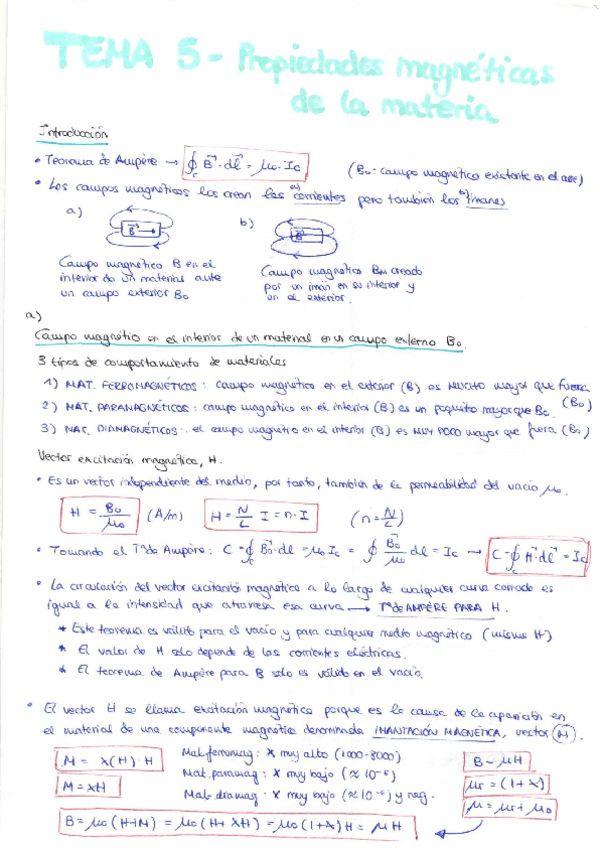 TEMA 5 - Propiedades magnéticas
de la materia
Introducción
• Teorema de Ampère → ∮c B⃗·dl⃗ = μo·Ic (Bo: campo magnético existente en el aire)
• Los campos magnéticos los crean las corrientes a) pero también los imanes b)
a) b)
B⃗
Campo magnético B en el
interior de un material ante
un campo exterior Bo
Campo magnético BM creado
por un imán en su interior y
en el exterior.
a)
Campo magnético en el interior de un material en un campo externo Bo.
3 tipos de comportamiento de materiales
1) MAT. FERROMAGNÉTICOS: campo magnético en el exterior (B) es MUCHO mayor que fuera (Bo)
2) MAT. PARAMAGNÉTICOS: campo magnético en el interior (B) es un poquito mayor que Bo.
3) MAT. DIAMAGNÉTICOS: el campo magnético en el interior (B) es MUY POCO mayor que fuera (Bo)
Vector excitación magnética, H.
• Es un vector independiente del medio, por tanto, también de la permeabilidad del vacío μo.
H = Bo/μo (A/m) H = N/L I = n·I (n = N/L)
• Tomando el Tª de Ampère: C = ∮c Bo⃗·dl = μo Ic = ∮ Bo⃗/μo dl = Ic → C = ∮c H·dl⃗ = Ic
• La circulación del vector excitación magnética a lo largo de cualquier curva cerrada es
igual a la intensidad que atraviesa esa curva → Tª de AMPÈRE PARA H.
* Este teorema es válido para el vacío y para cualquier medio magnético (mismo H)
* El valor de H solo depende de las corrientes eléctricas.
* El teorema de Ampère para B solo es válido en el vacío.
• El vector H se llama excitación magnética porque es la causa de la aparición en
el material de una componente magnética denominada IMANTACIÓN MAGNÉTICA, vector M.
M = χ(H)·H Mat. ferromag: χ muy alto (1000-8000) B = μH
M = χH Mat. paramag: χ muy bajo (≈10⁻⁶) μr = (1+χ)
Mat. diamag: χ muy bajo (≈10⁻⁶) y neg. μ = μr + μo
B = μo(H+M) = μo(H+χH) = μo(1+χ)H = μH